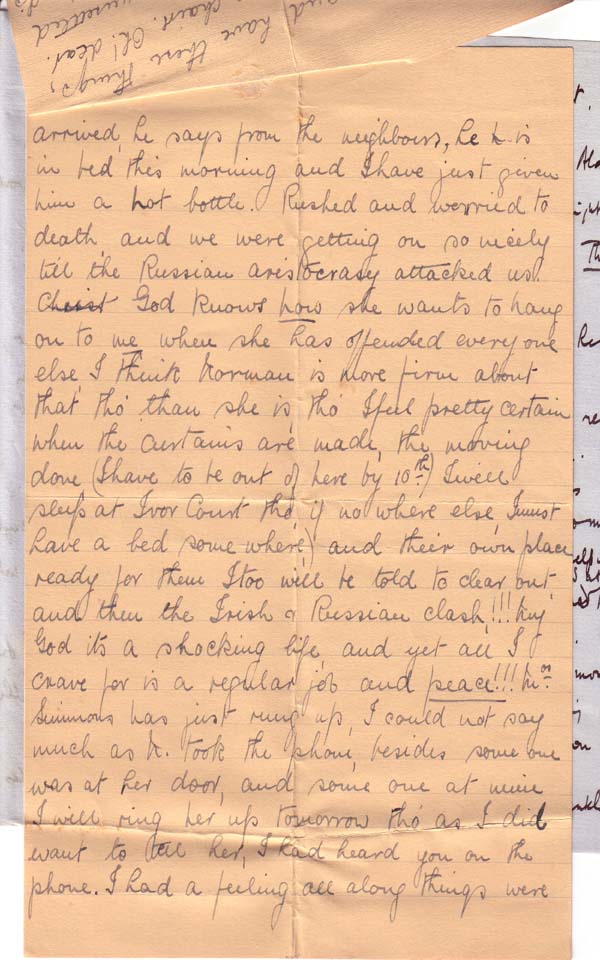 things,
there
chairs. Oh! dear.
and have
arrived, he says from the neighbours, he is
in bed this morning and I have just given
him a hot bottle. Rushed and worried to
death, and we were getting on so nicely
till the Russian aristocrasy attacked us.
Christ God knows how she wants to hang
on to me when she has offended everyone
else, I think Norman is more firm about
that tho' than she is, tho' I feel pretty certain
when the curtains are made, the moving
done (I have to be out of here by 10th) I will
sleep at Ivor Court tho', if no where else, I must
have a bed some where) and their own place
ready for them I too will be told to clear out,
and then the Irish & Russian clash!!! My
God its a shocking life, and yet all I
crave for is a regular job and peace!!! Mrs.
Simmons has just rung up, I could not say
much as N. took the phone, besides some one
was at her door, and some one at mine
I will ring her up tomorrow tho' as I did
want to tell her, I had heard you on the
phone. I had a feeling all along things were